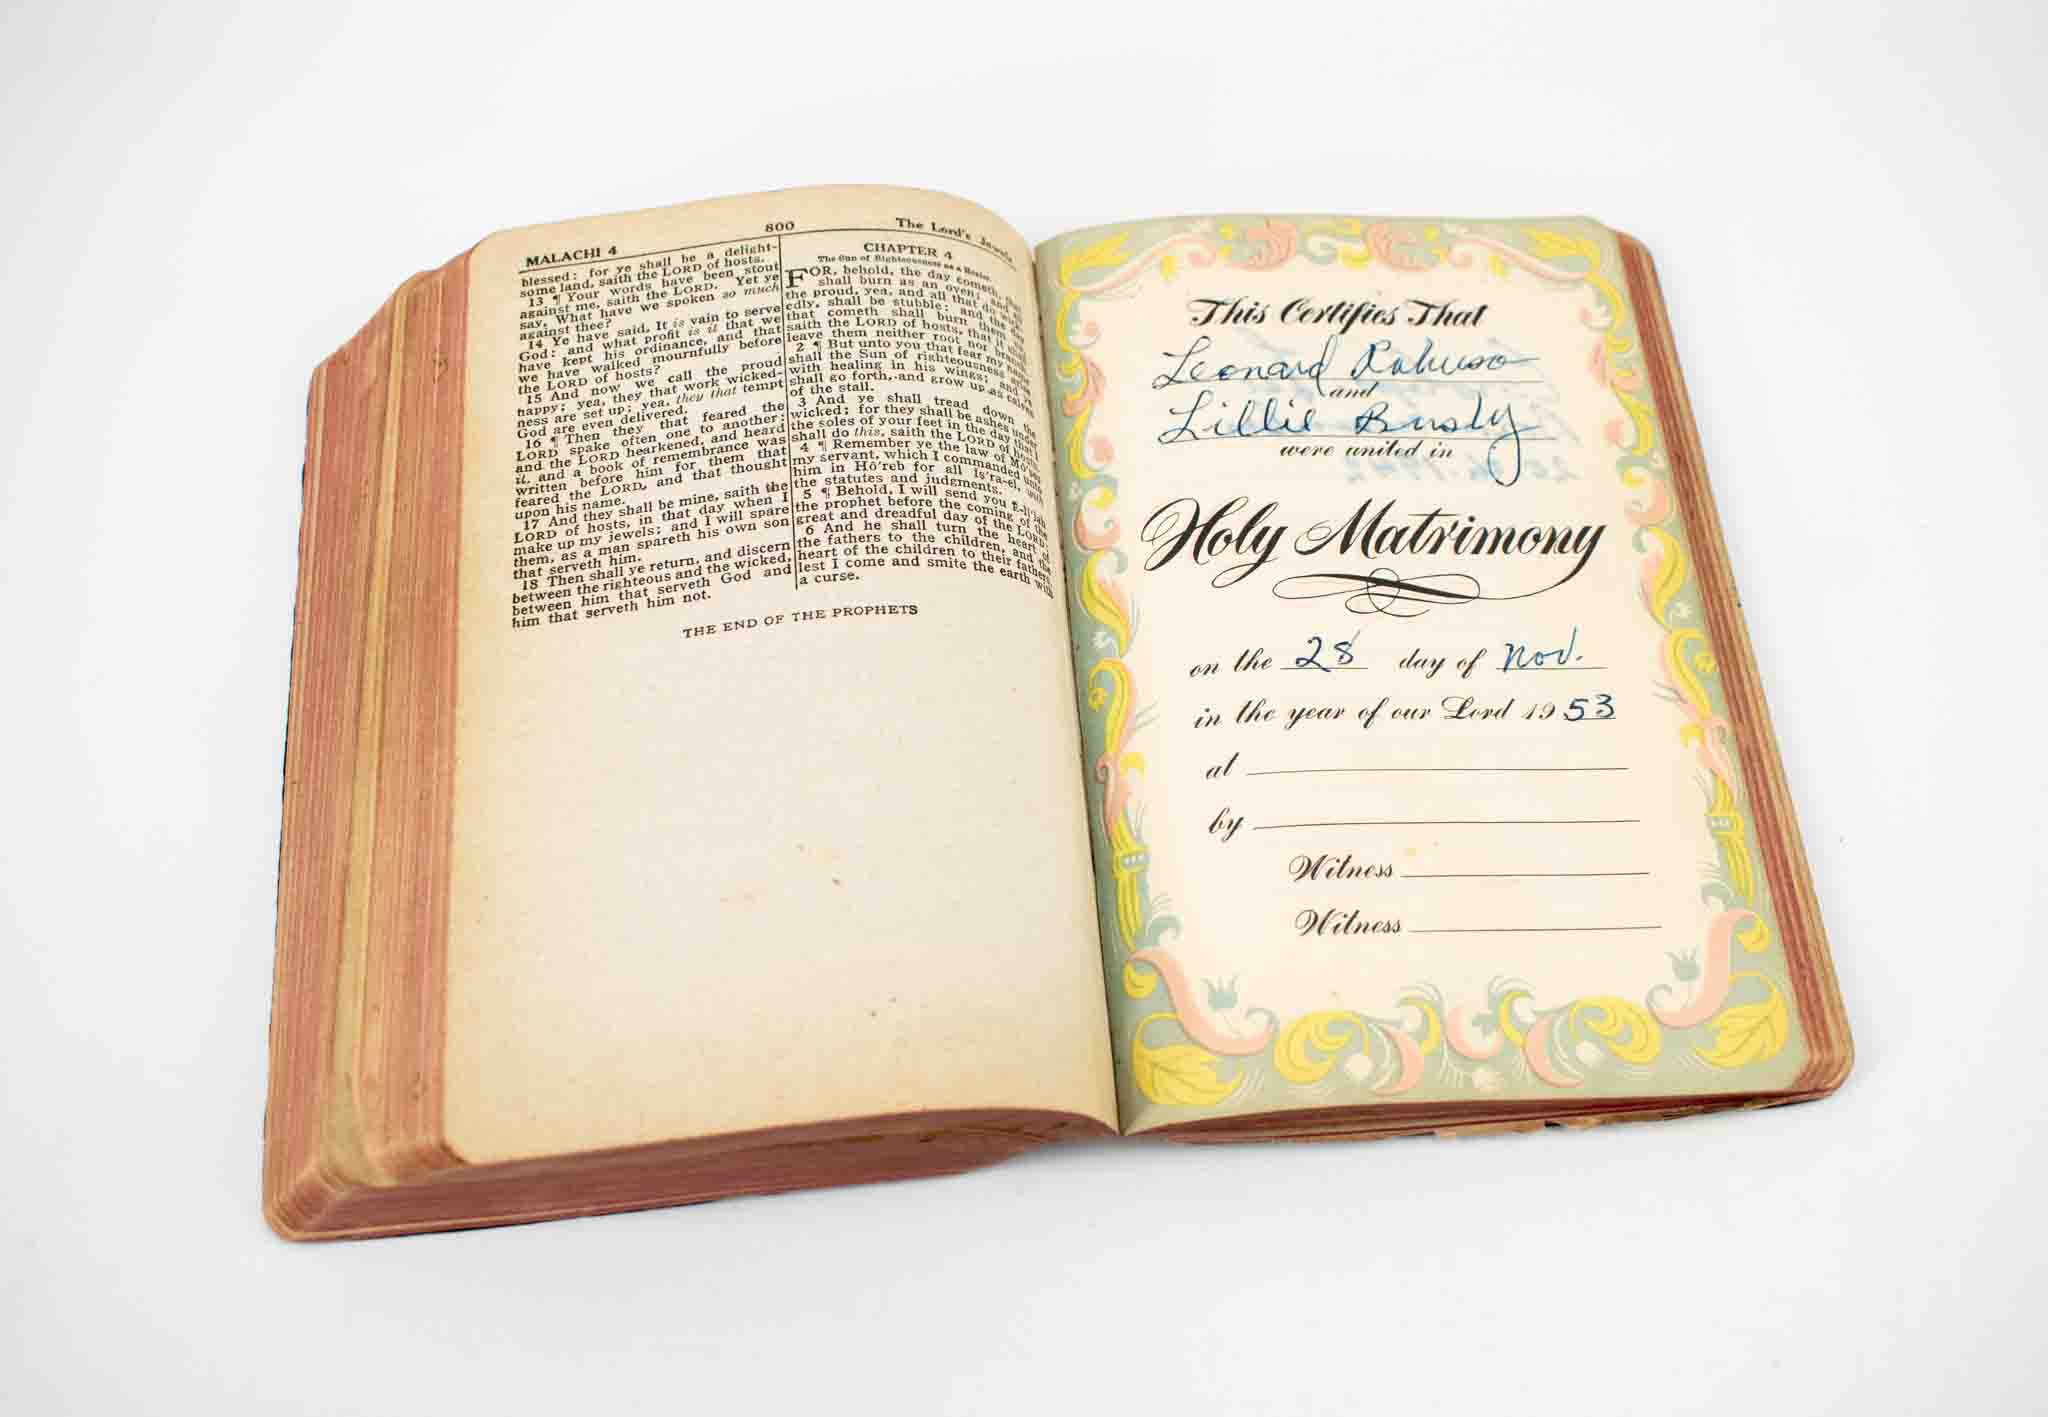 MALACHI 4
800
The Lord's Jewels
blessed: for ye shall be a delight-
some land, saith the LORD of hosts.
13 ¶ Your words have been stout
against me, saith the LORD. Yet ye
say, What have we spoken so much
against thee?
14 Ye have said, It is vain to serve
God: and what profit is it that we
have kept his ordinance, and that
we have walked mournfully before
the LORD of hosts?
15 And now we call the proud
happy; yea, they that work wicked-
ness are set up; yea, they that tempt
God are even delivered.
16 ¶ Then they that feared the
LORD spake often one to another:
and the LORD hearkened, and heard
it, and a book of remembrance was
written before him for them that
feared the LORD, and that thought
upon his name.
17 And they shall be mine, saith the
LORD of hosts, in that day when I
make up my jewels; and I will spare
them, as a man spareth his own son
that serveth him.
18 Then shall ye return, and discern
between the righteous and the wicked,
between him that serveth God and
him that serveth him not.
CHAPTER 4
The Sun of Righteousness as a Healer.
FOR, behold, the day cometh, that
shall burn as an oven; and all
the proud, yea, and all that do wick-
edly, shall be stubble: and the day
that cometh shall burn them up,
saith the LORD of hosts, that it shall
leave them neither root nor branch.
2 ¶ But unto you that fear my name
shall the Sun of righteousness arise
with healing in his wings; and ye
shall go forth, and grow up as calves
of the stall.
3 And ye shall tread down the
wicked; for they shall be ashes under
the soles of your feet in the day that I
shall do this, saith the LORD of hosts.
4 ¶ Remember ye the law of Mō'ses
my servant, which I commanded unto
him in Hō'reb for all Is'ra-el, with
the statutes and judgments.
5 ¶ Behold, I will send you E-lī'jah
the prophet before the coming of the
great and dreadful day of the LORD:
6 And he shall turn the heart of
the fathers to the children, and the
heart of the children to their fathers,
lest I come and smite the earth with
a curse.
THE END OF THE PROPHETS
This Certifies That
Leonard
and
Lillie
were united in
Holy Matrimony
on the 28 day of Nov.
in the year of our Lord 1953
at
by
Witness
Witness